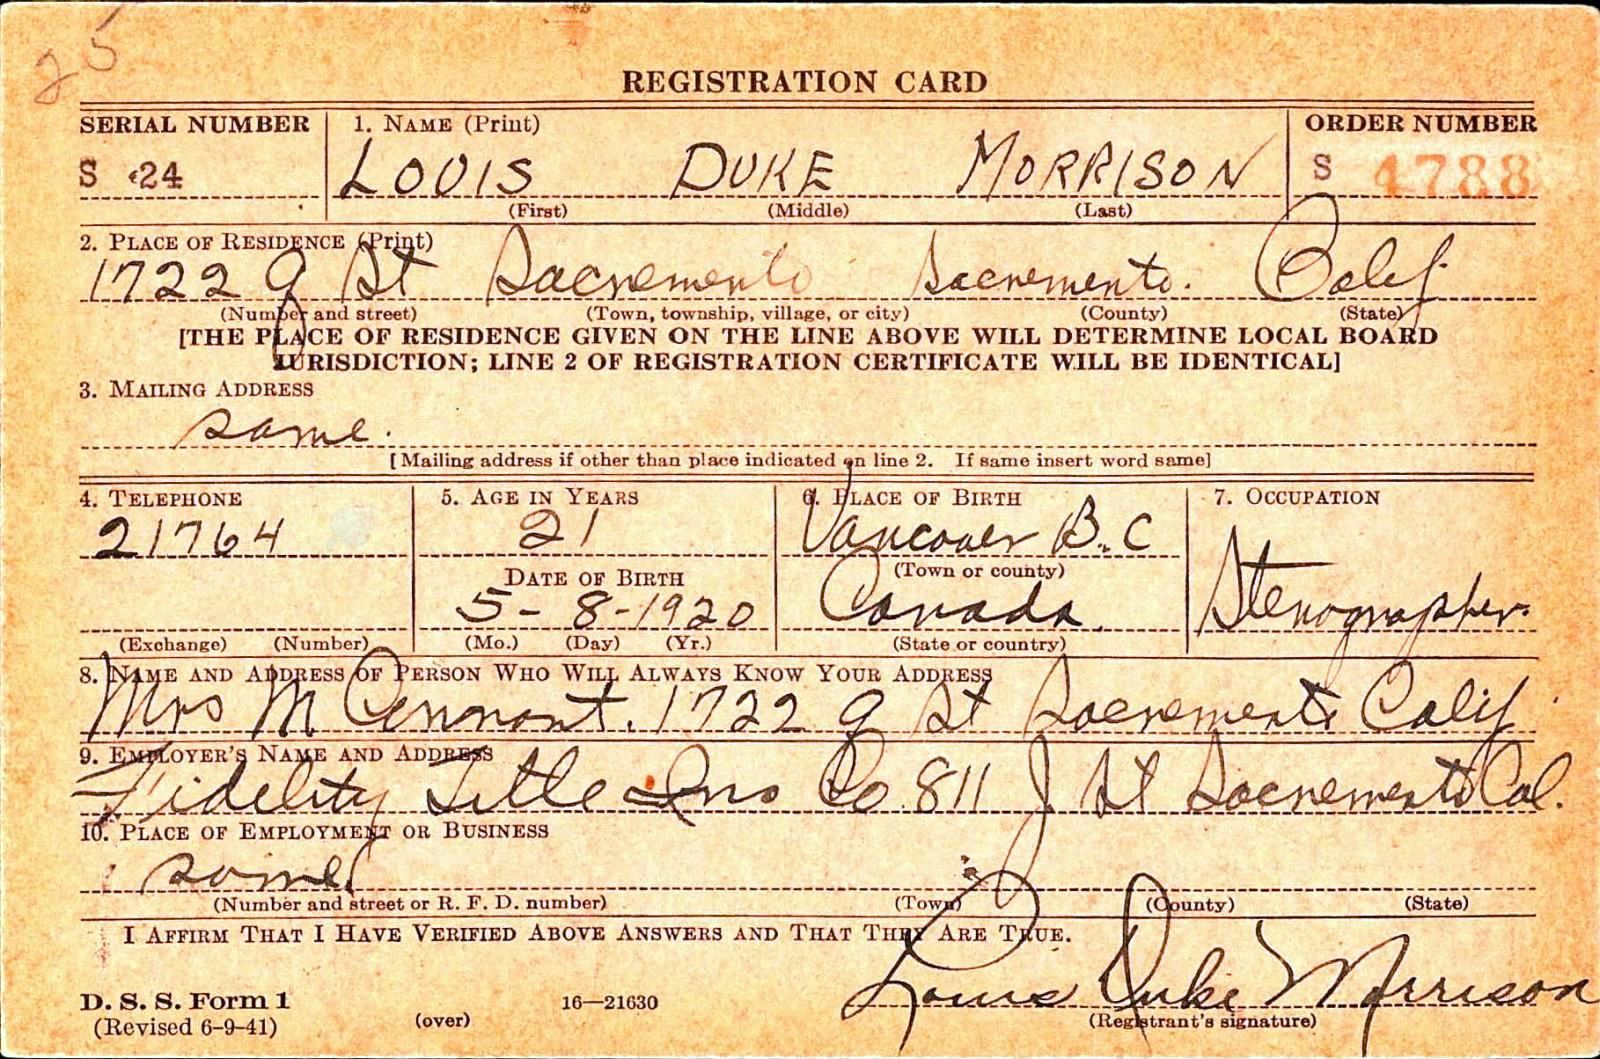 25
REGISTRATION CARD
SERIAL NUMBER 1. NAME (Print) ORDER NUMBER
S 24 LOUIS DUKE MORRISON S 4788
(First) (Middle) (Last)
2. PLACE OF RESIDENCE (Print)
1722 Q St Sacramento Sacramento. Calif.
(Number and street) (Town, township, village, or city) (County) (State)
[THE PLACE OF RESIDENCE GIVEN ON THE LINE ABOVE WILL DETERMINE LOCAL BOARD
JURISDICTION; LINE 2 OF REGISTRATION CERTIFICATE WILL BE IDENTICAL]
3. MAILING ADDRESS
same.
[Mailing address if other than place indicated on line 2. If same insert word same]
4. TELEPHONE 5. AGE IN YEARS 6. PLACE OF BIRTH 7. OCCUPATION
21764 21 Vancouver B.C
DATE OF BIRTH (Town or county)
5-8-1920 Canada. Stenographer.
(Exchange) (Number) (Mo.) (Day) (Yr.) (State or country)
8. NAME AND ADDRESS OF PERSON WHO WILL ALWAYS KNOW YOUR ADDRESS
Mrs M 1722 Q St Sacramento Calif.
9. EMPLOYER'S NAME AND ADDRESS
Fidelity Title Ins Co 811 J St Sacramento Cal.
10. PLACE OF EMPLOYMENT OR BUSINESS
same
(Number and street or R. F. D. number) (Town) (County) (State)
I AFFIRM THAT I HAVE VERIFIED ABOVE ANSWERS AND THAT THEY ARE TRUE.
Louis Duke Morrison
D. S. S. Form 1 16—21630
(Revised 6-9-41) (over) (Registrant's signature)